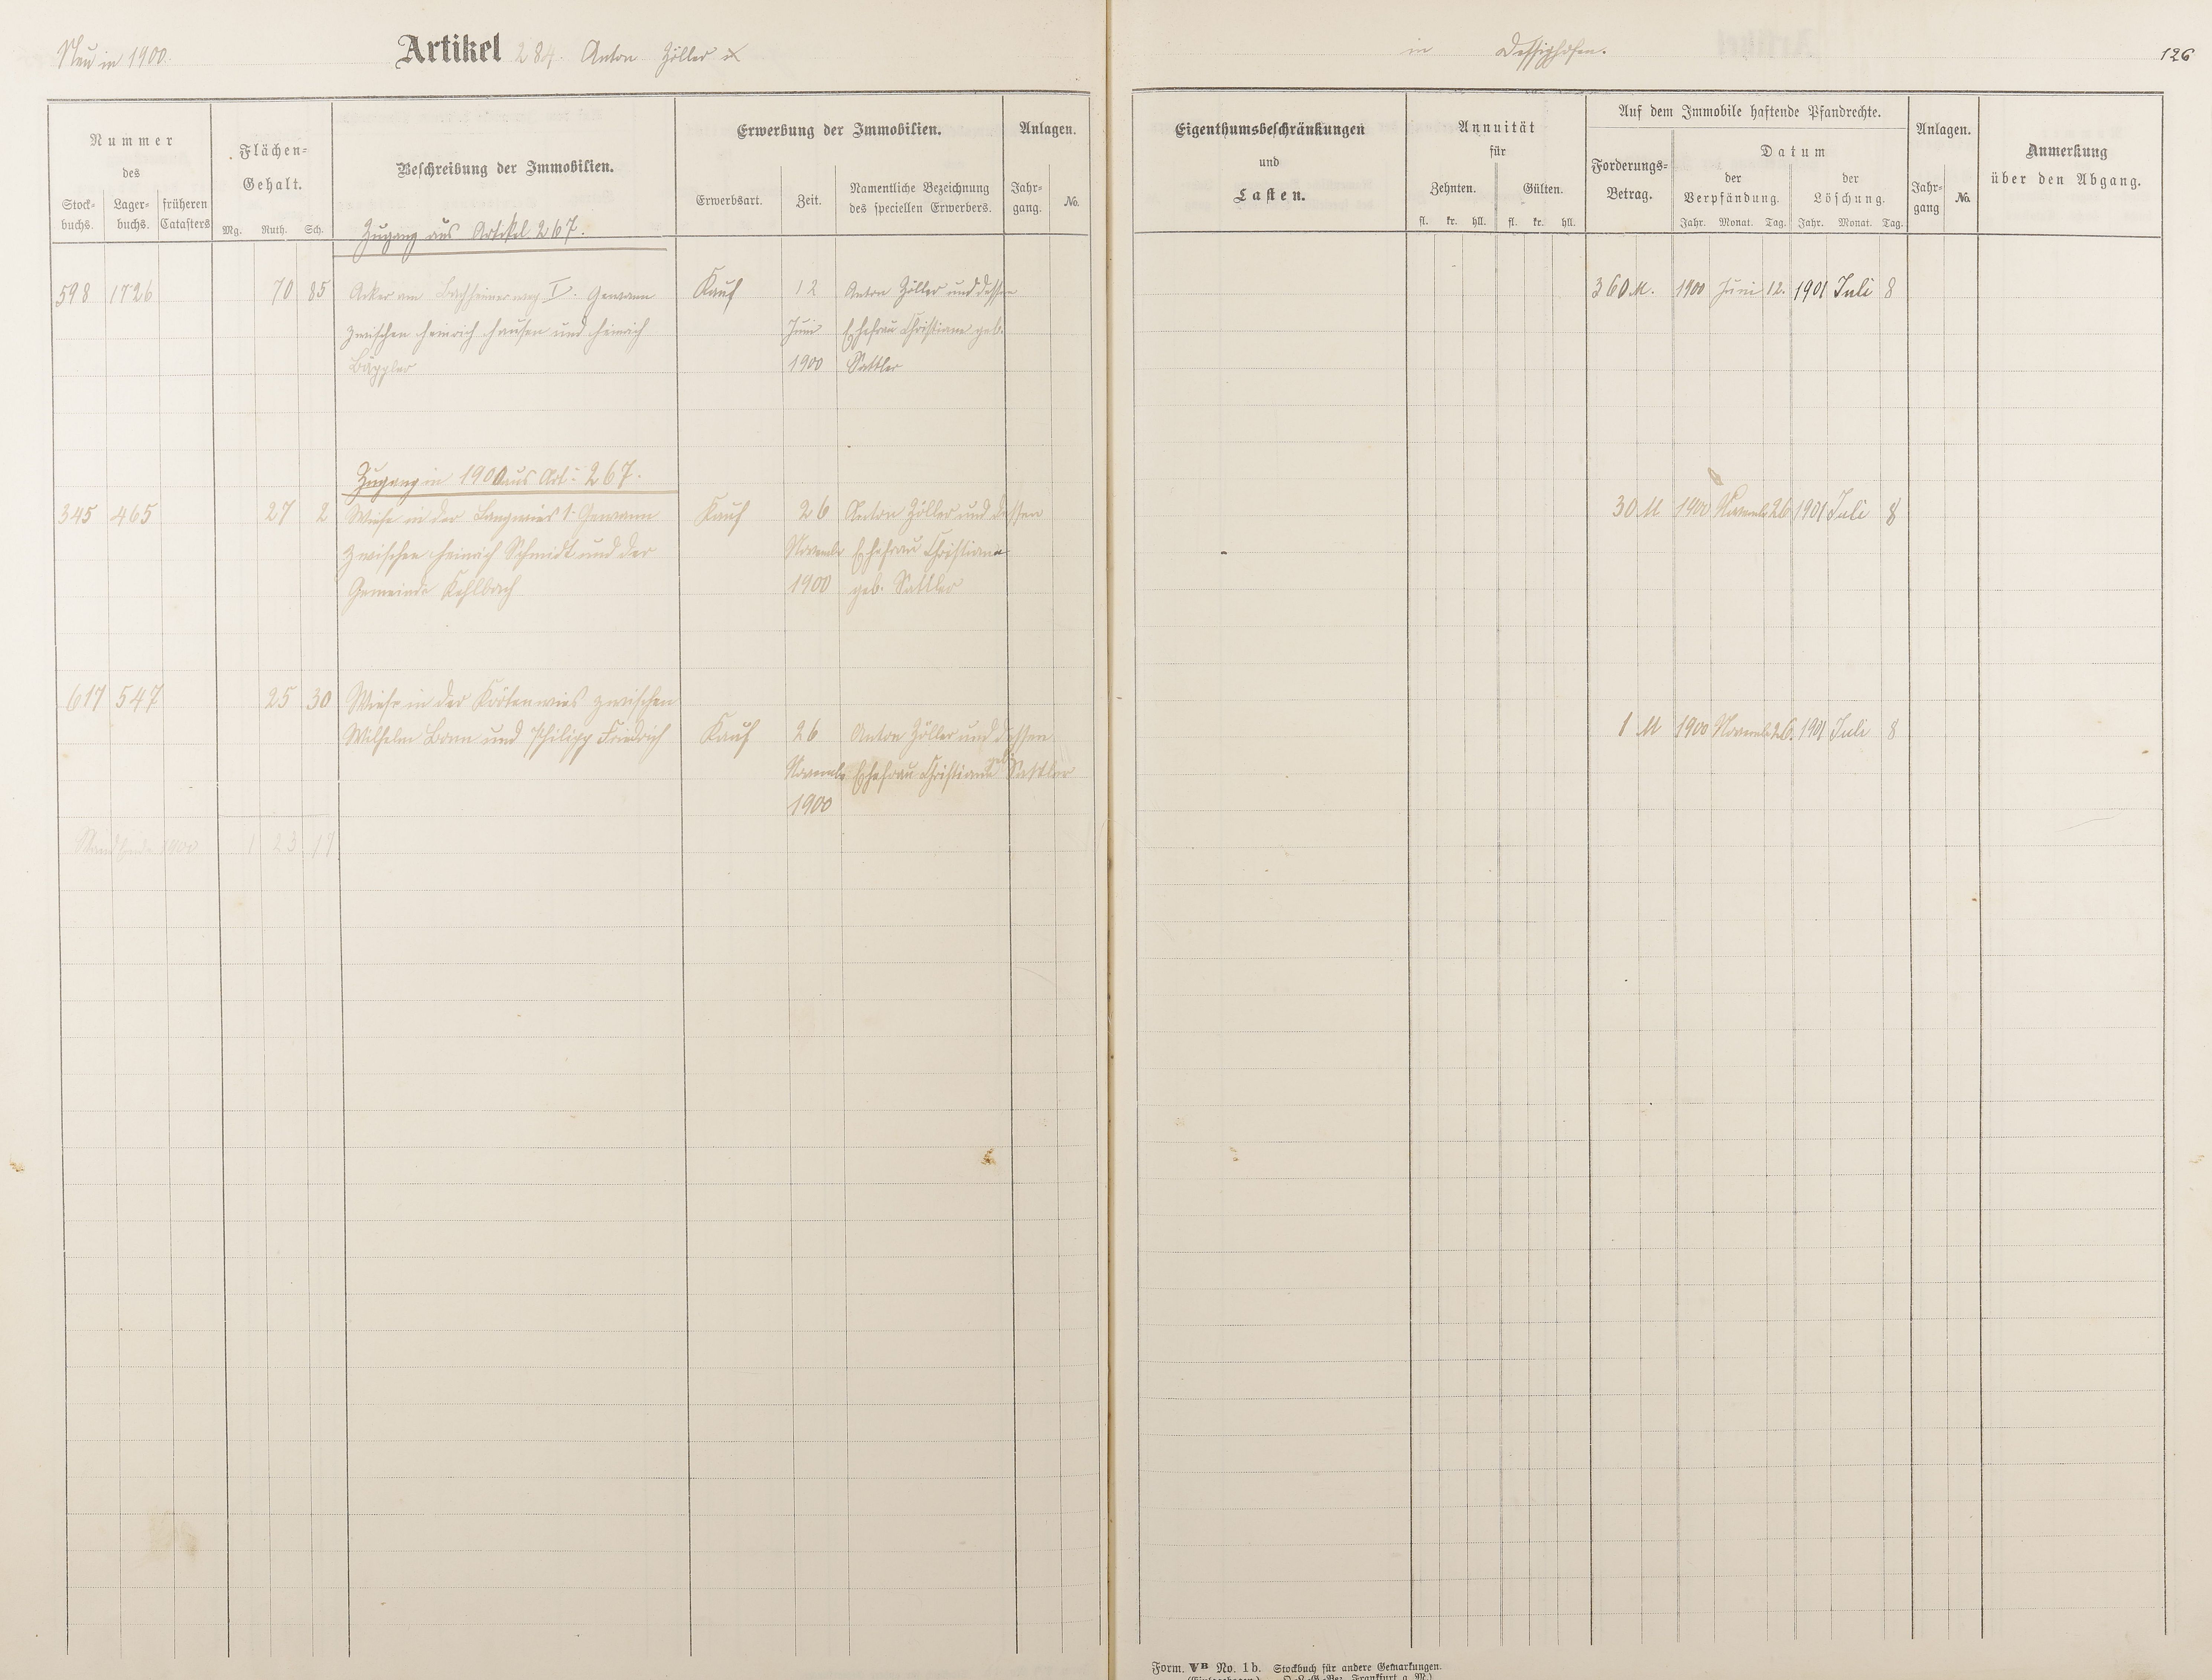 Neu in 1900.
Artikel 284. Anton Zöller
in Dessighofen.
126
Nummer
des
Stock-
buchs.
Lager-
buchs.
früheren
Catasters
Flächen-
Gehalt.
Mg. Ruth. Sch.
Beschreibung der Immobilien.
Erwerbung der Immobilien.
Erwerbsart.
Zeit.
Namentliche Bezeichnung
des speciellen Erwerbers.
Anlagen.
Jahr-
gang.
No.
Eigenthumsbeschränkungen
und
Lasten.
Annuität
für
Zehnten. Gülten.
fl. kr. hll. fl. kr. hll.
Auf dem Immobile haftende Pfandrechte.
Forderungs-
Betrag.
Datum
der
Verpfändung.
der
Löschung.
Jahr. Monat. Tag. Jahr. Monat. Tag.
Anlagen.
Jahr-
gang
No.
Anmerkung
über den Abgang.
Zugang aus Artikel 267.
598 1726 70 85 Acker am I. Gewann Kauf 12 Anton Zöller und dessen 360 M. 1900 Juni 12. 1901 Juli 8
zwischen Heinrich und Heinrich Juni Ehefrau Christiane geb.
1900 Sattler
Zugang in 1900 aus Art: 267.
345 465 27 2 Wiese in der Langwies 1. Gewann Kauf 26 Anton Zöller und dessen 30 M 1900 Novembr 26 1901 Juli 8
zwischen Heinrich Schmidt und der Novembr Ehefrau Christiane
Gemeinde Kehlbach 1900 geb. Sattler
617 547 25 30 Wiese in der zwischen
Wilhelm Bonn und Philipp Friedrich Kauf 26 Anton Zöller und dessen 1 M 1900 Novembr 26. 1901 Juli 8
Novembr Ehefrau Christiane geb. Sattler
1900
Stand Ende 1900 1 23 17
Form. VB No. 1b. Stockbuch für andere Gemarkungen.